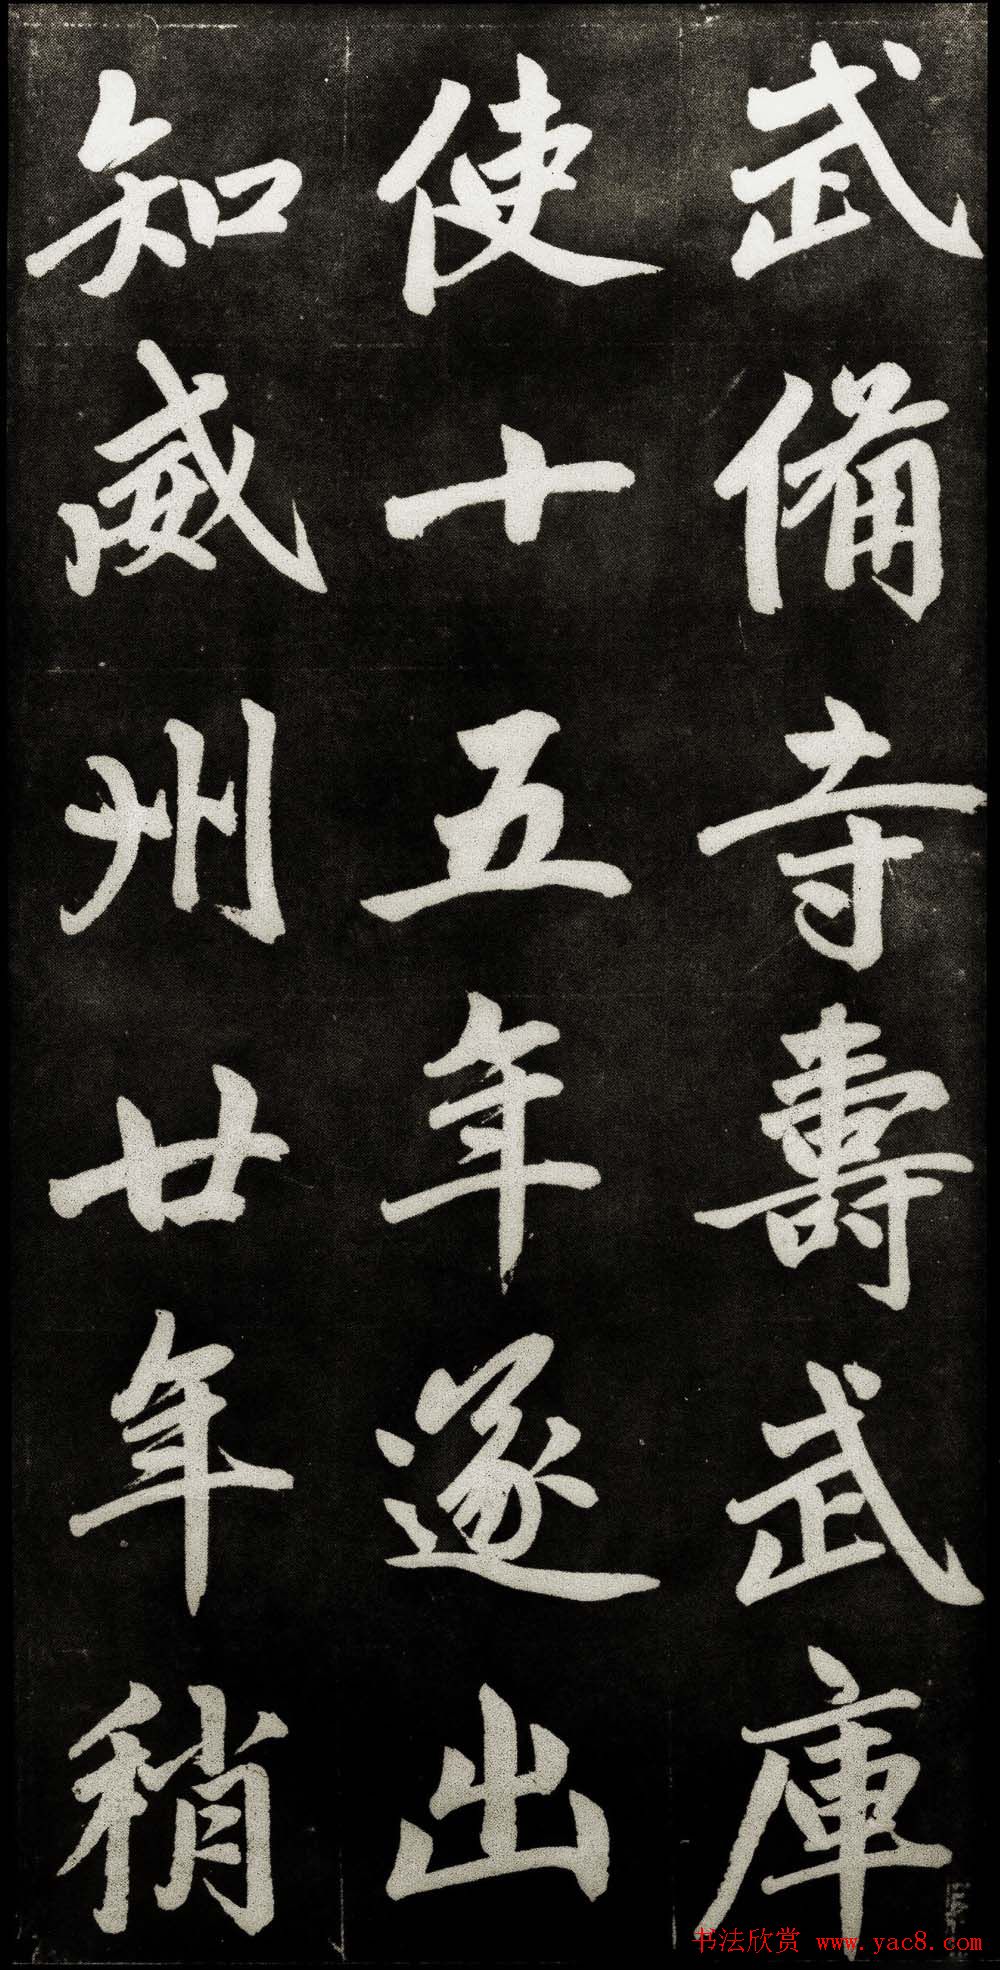 武備寺壽武庫
使十五年遂出
知威州廿年稍
书法欣赏 www.yac8.com